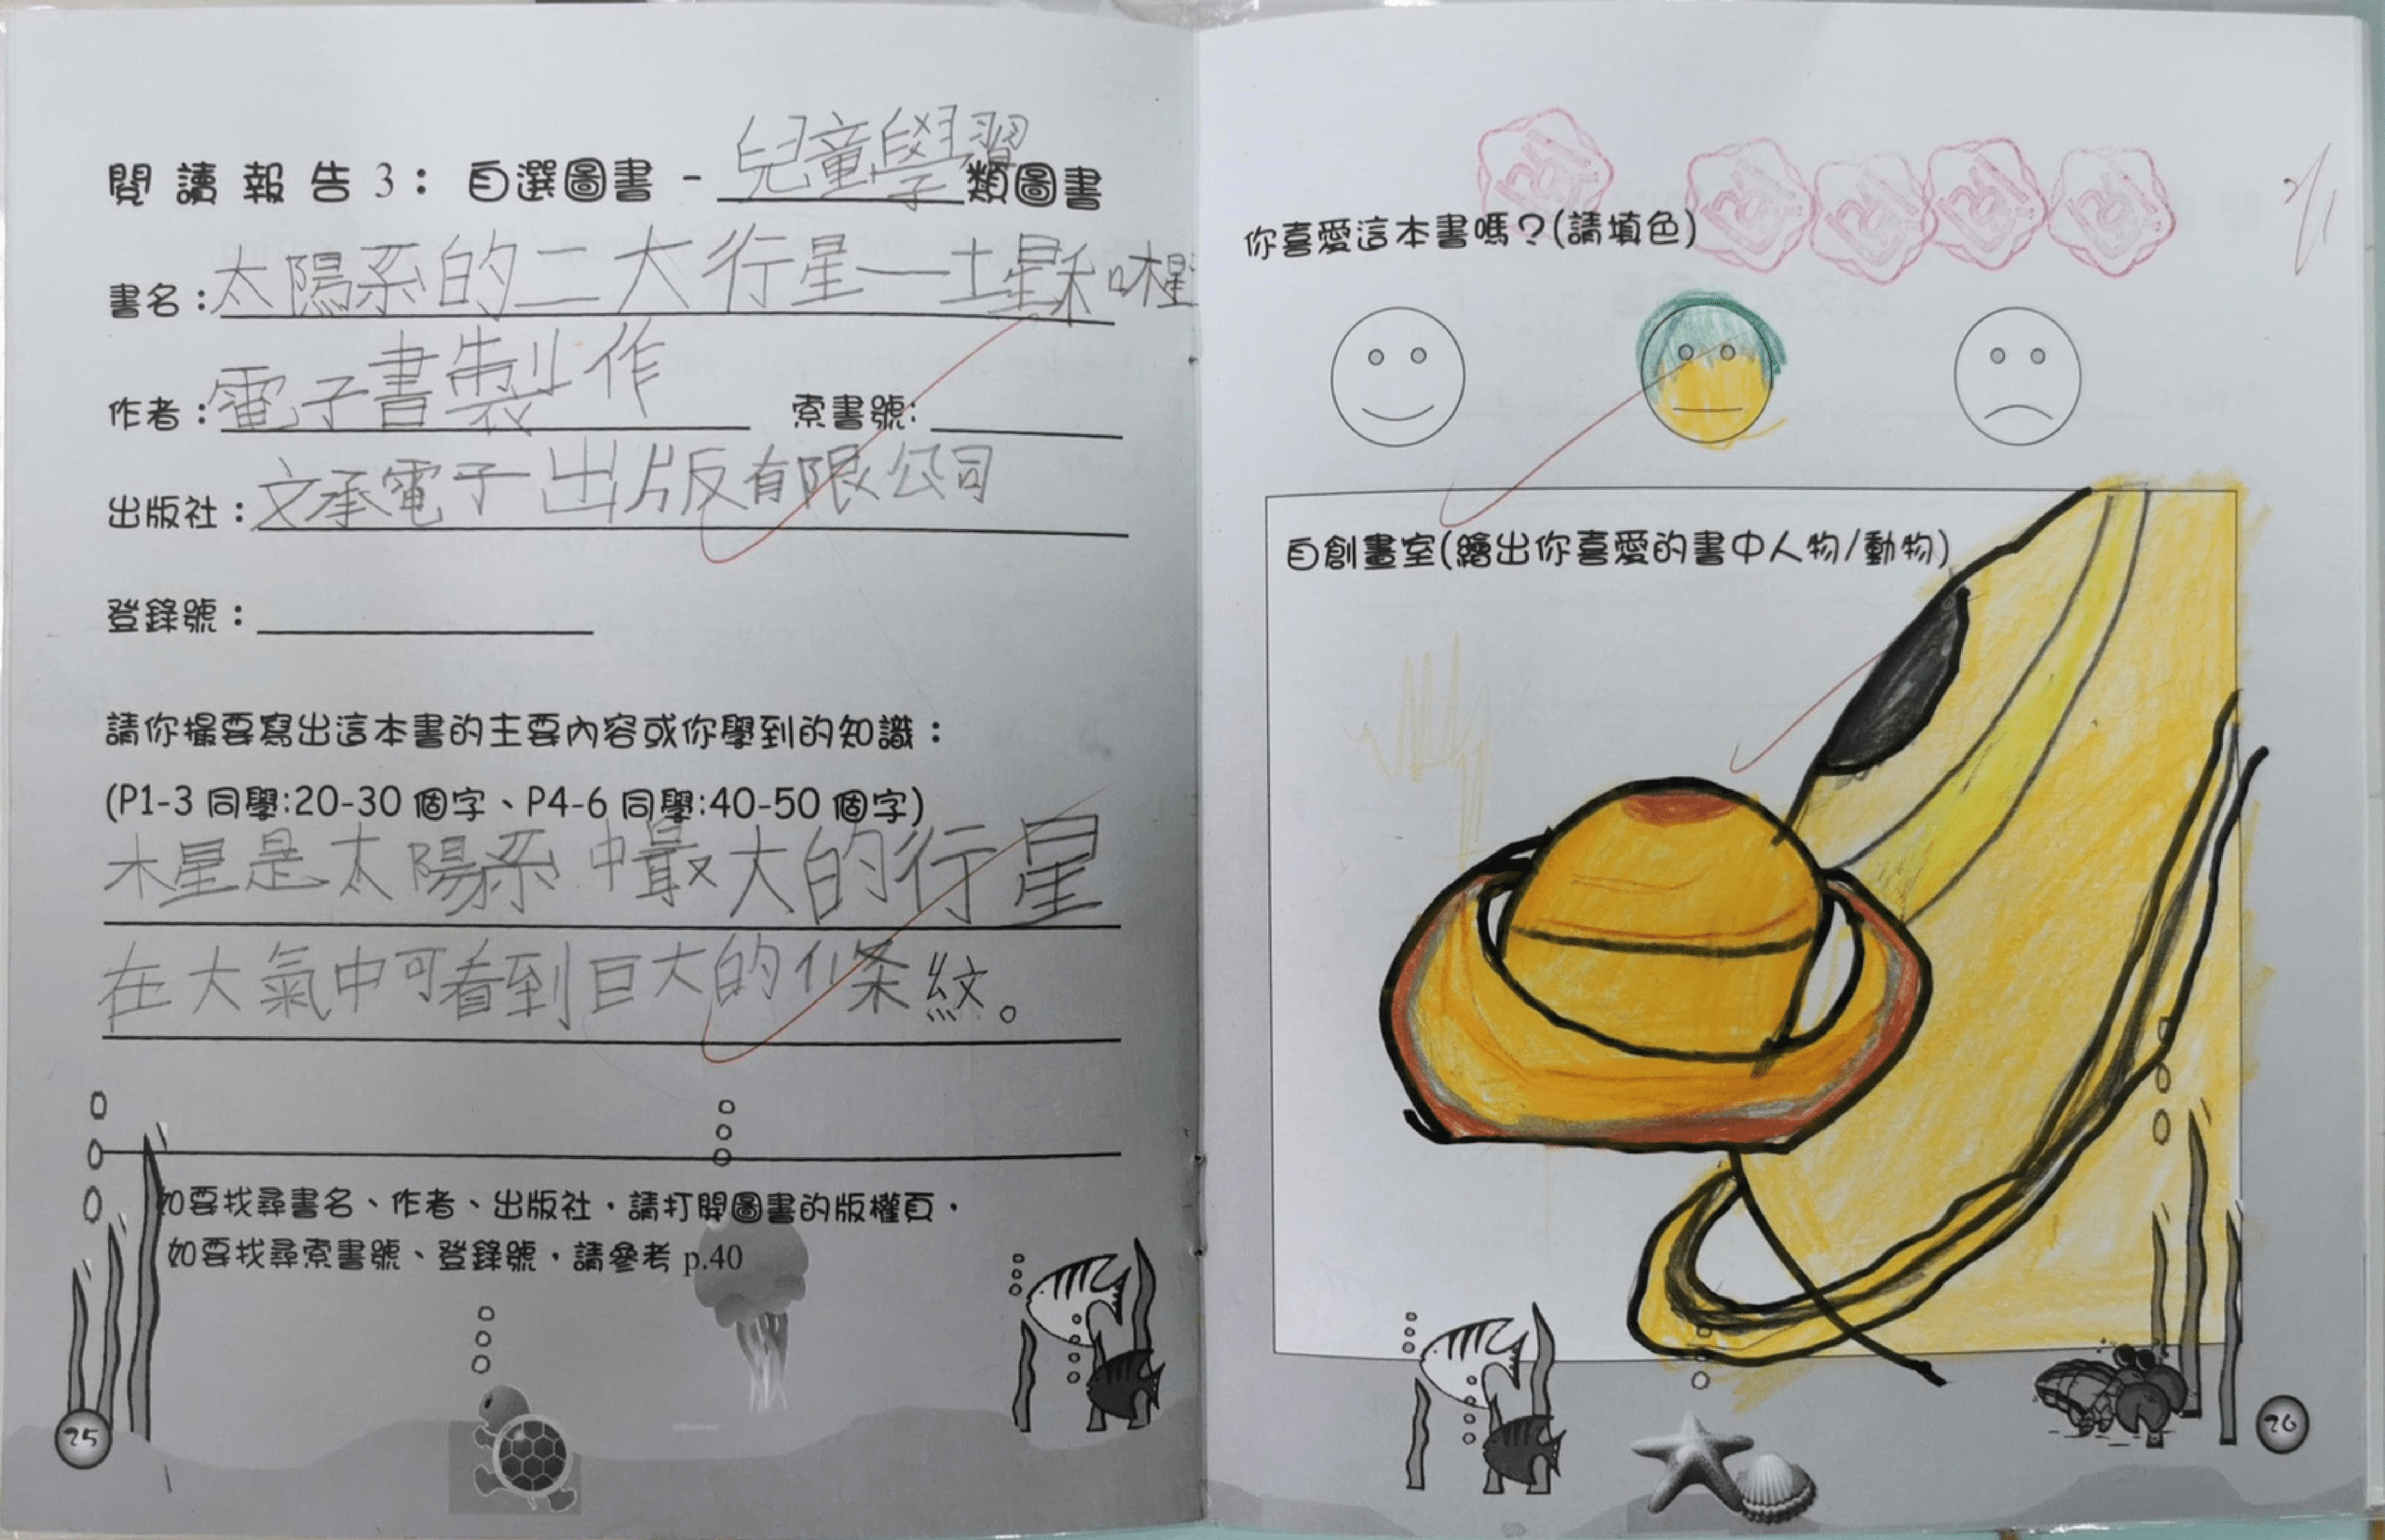 閱讀報告 3：自選圖書 - 兒童學習類圖書
書名：太陽系的二大行星—土星和木星
作者：電子書製作 索書號：
出版社：文承電子出版有限公司
登錄號：
請你撮要寫出這本書的主要內容或你學到的知識：
(P1-3 同學:20-30 個字、P4-6 同學:40-50 個字)
木星是太陽系中最大的行星
在大氣中可看到巨大的條紋。
如要找尋書名、作者、出版社，請打開圖書的版權頁，
如要找尋索書號、登錄號，請參考 p.40
25
你喜愛這本書嗎？(請填色)
自創畫室(繪出你喜愛的書中人物/動物)
26